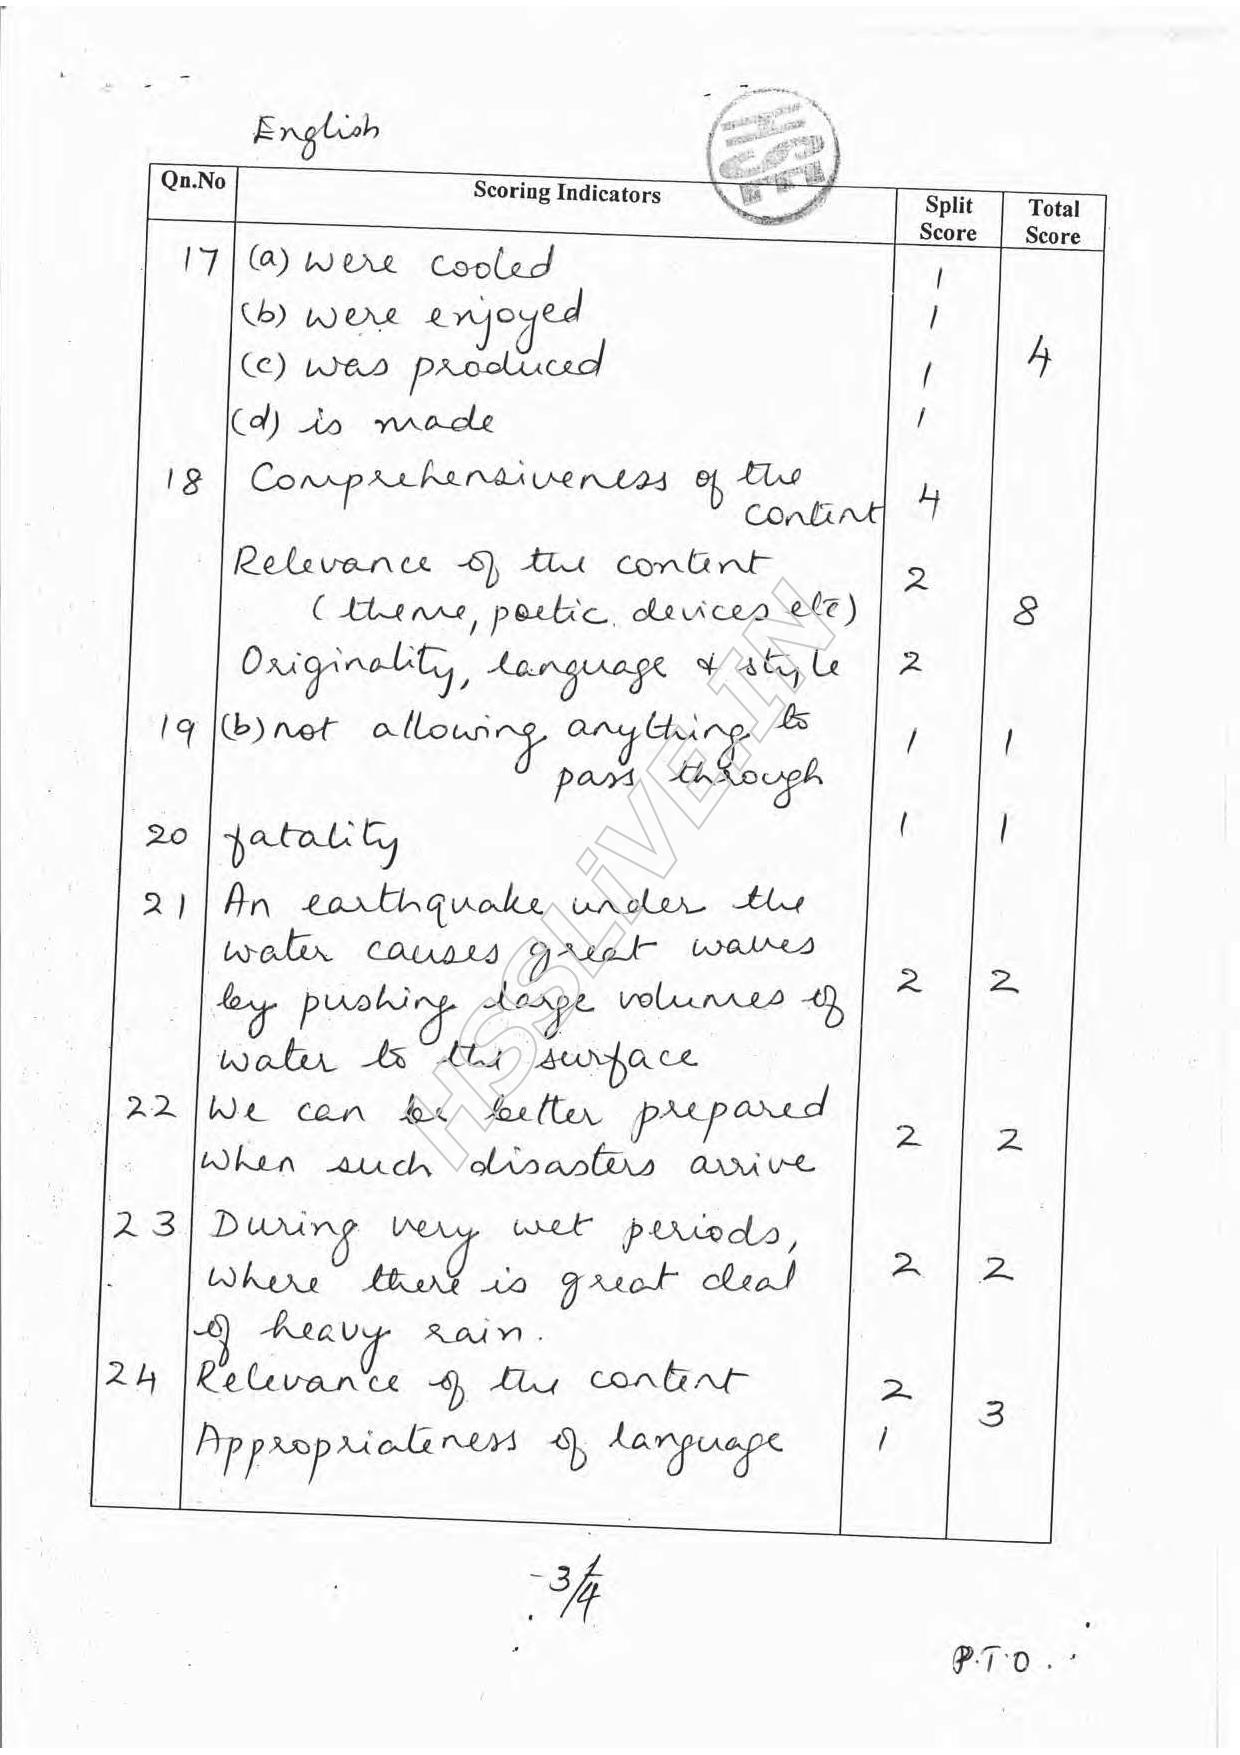 English
HSE
Qn.No Scoring Indicators Split Score Total Score
17 (a) were cooled 1
(b) were enjoyed 1
(c) was produced 1 4
(d) is made 1
18 Comprehensiveness of the
content 4
Relevance of the content 2
(theme, poetic devices etc) 8
Originality, language & style 2
19 (b) not allowing anything to 1 1
pass through
20 fatality 1 1
21 An earthquake under the
water causes great waves
by pushing large volumes of 2 2
water to the surface
22 We can be better prepared 2 2
when such disasters arrive
23 During very wet periods,
where there is great deal 2 2
of heavy rain.
24 Relevance of the content 2 3
Appropriateness of language 1
3/4
P.T.O.
HSSLiVE.IN